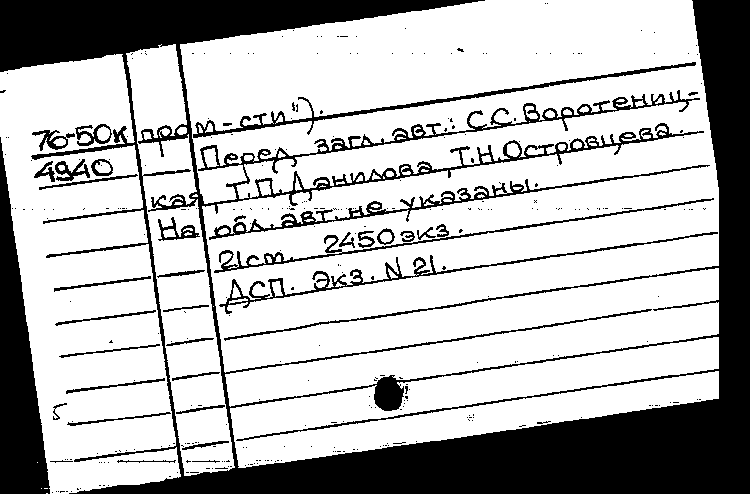 76-50к пром-сти").
4940 Перед загл. авт.: С.С. Воротениц-
кая, Т.П. Данилова, Т.Н. Островцева.
На обл. авт. не указаны.
21 ст. 2450 экз.
ДСП. Экз. N 21.
5